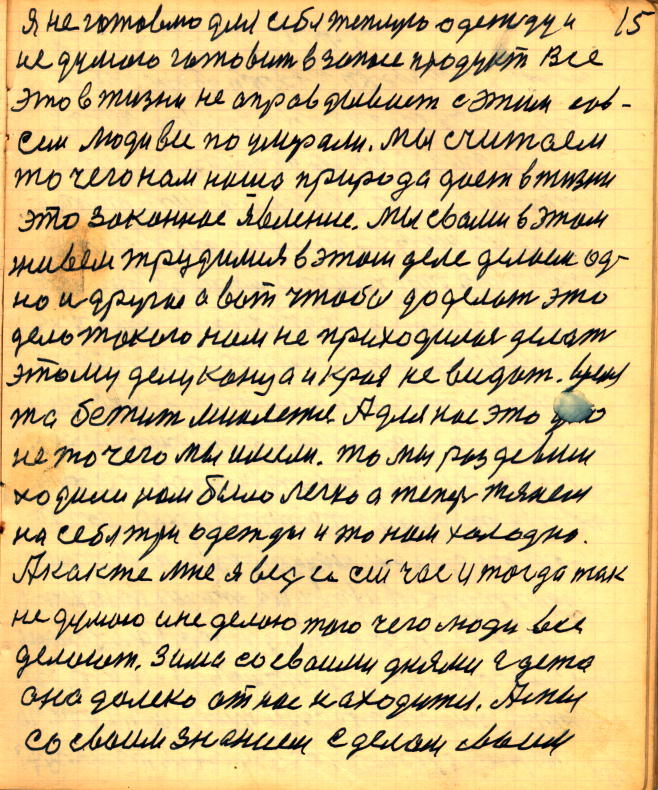 Я не готовлю для себя теплую одежду и 15
не думаю готовить в запас продукт. Все
это в жизни не оправдывает с этим сов-
сем люди все поумирали. Мы считаем
то чего нам наша природа дает в жизни
это законное явление. Мы с вами в этом
живем трудимся в этом деле делаем од-
но и другое а вот чтобы доделать это
дело такого нам не приходилось делать
этому делу конца и края не видать. Время
та бежит минается. А для нас это
не то чего мы имели. То мы раздевши
ходили нам было легко а теперь тянем
на себя три одежды и то нам холодно.
А как же мне я ведь и сейчас и тогда так
не думаю и не делаю того чего люди все
делают. Зима со своими днями где то
она далеко от нас находится. А мы
со своим знанием сделали своим